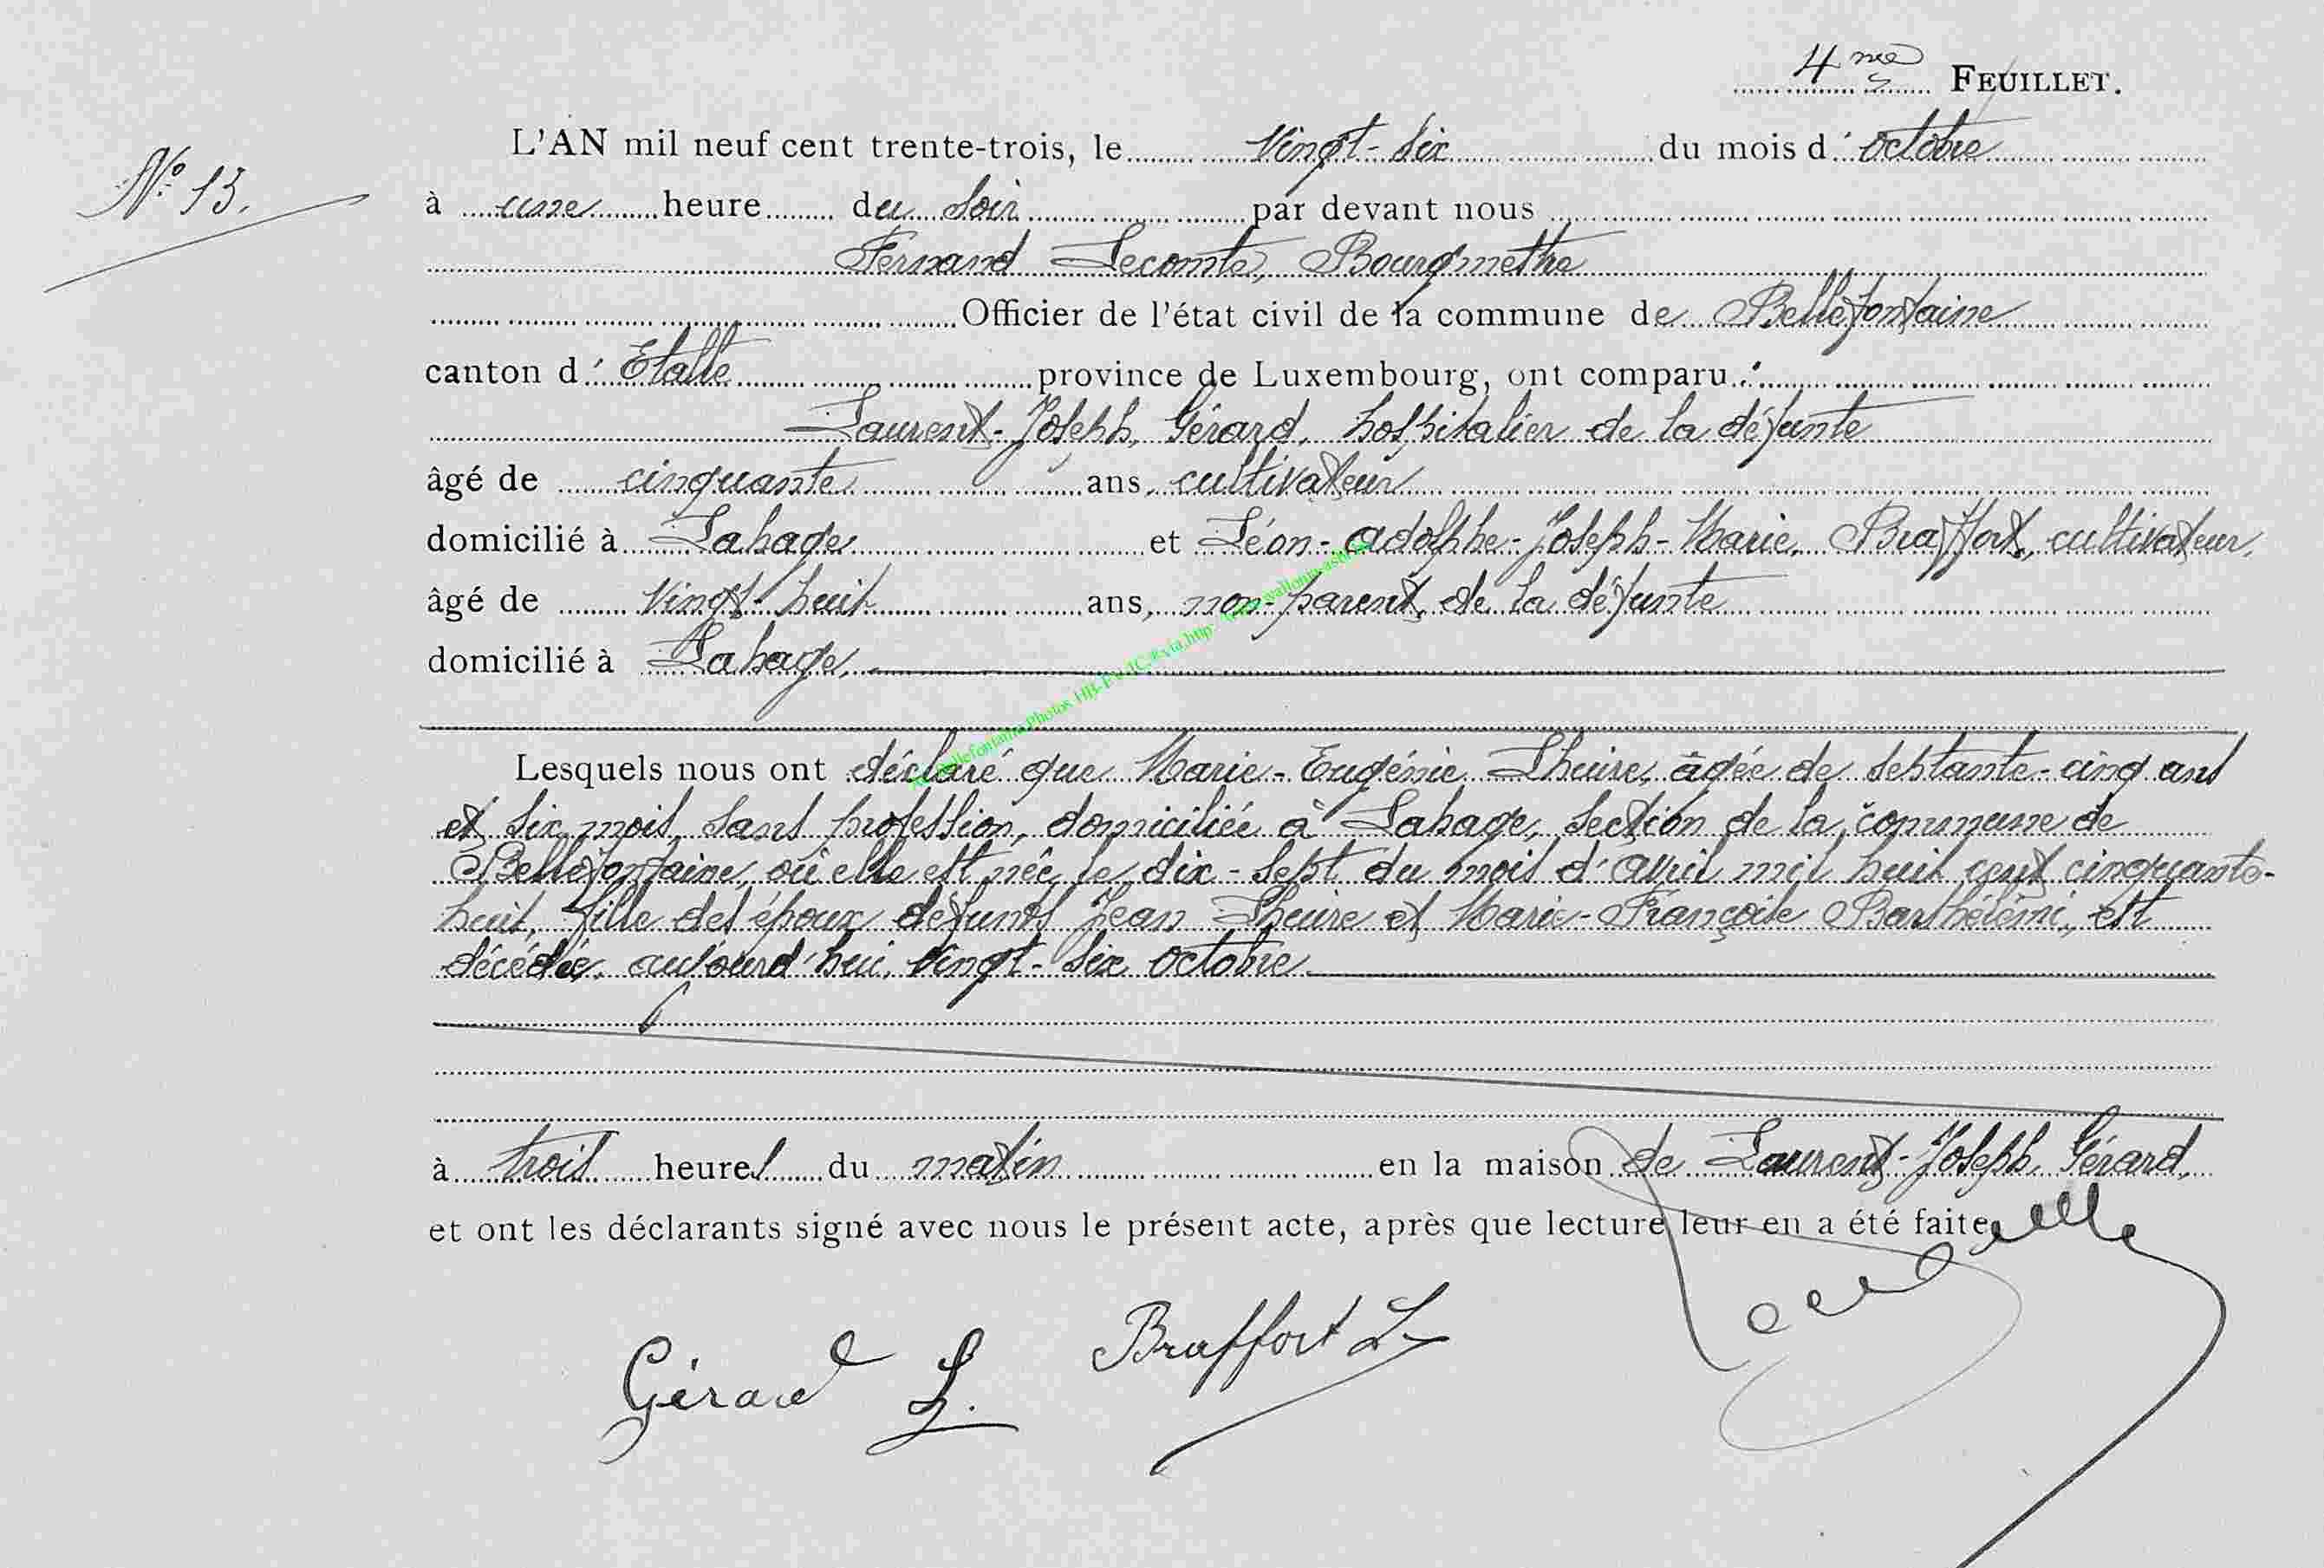 4me FEUILLET.
N° 13.
L'AN mil neuf cent trente-trois, le vingt-six du mois d'octobre
à une heure du soir par devant nous
Fernand Lecomte, Bourgmestre
Officier de l'état civil de la commune de Bellefontaine
canton d'Etalle province de Luxembourg, ont comparu :
Laurent-Joseph Gérard, hospitalier de la défunte
âgé de cinquante ans, cultivateur
domicilié à Lahage et Léon-Adolphe-Joseph-Marie Braffort, cultivateur,
âgé de vingt-huit ans, non-parent de la défunte
domicilié à Lahage.
Lesquels nous ont déclaré que Marie-Eugénie Lheire, âgée de septante-cinq ans
et six mois, sans profession, domiciliée à Lahage, section de la commune de
Bellefontaine, où elle est née le dix-sept du mois d'avril mil huit cent cinquante-
huit, fille des époux défunts Jean Lheire et Marie-Françoise Barthélémi, est
décédée aujourd'hui, vingt-six octobre
à trois heures du matin en la maison de Laurent-Joseph Gérard,
et ont les déclarants signé avec nous le présent acte, après que lecture leur en a été faite.
Gérard L. Braffort L